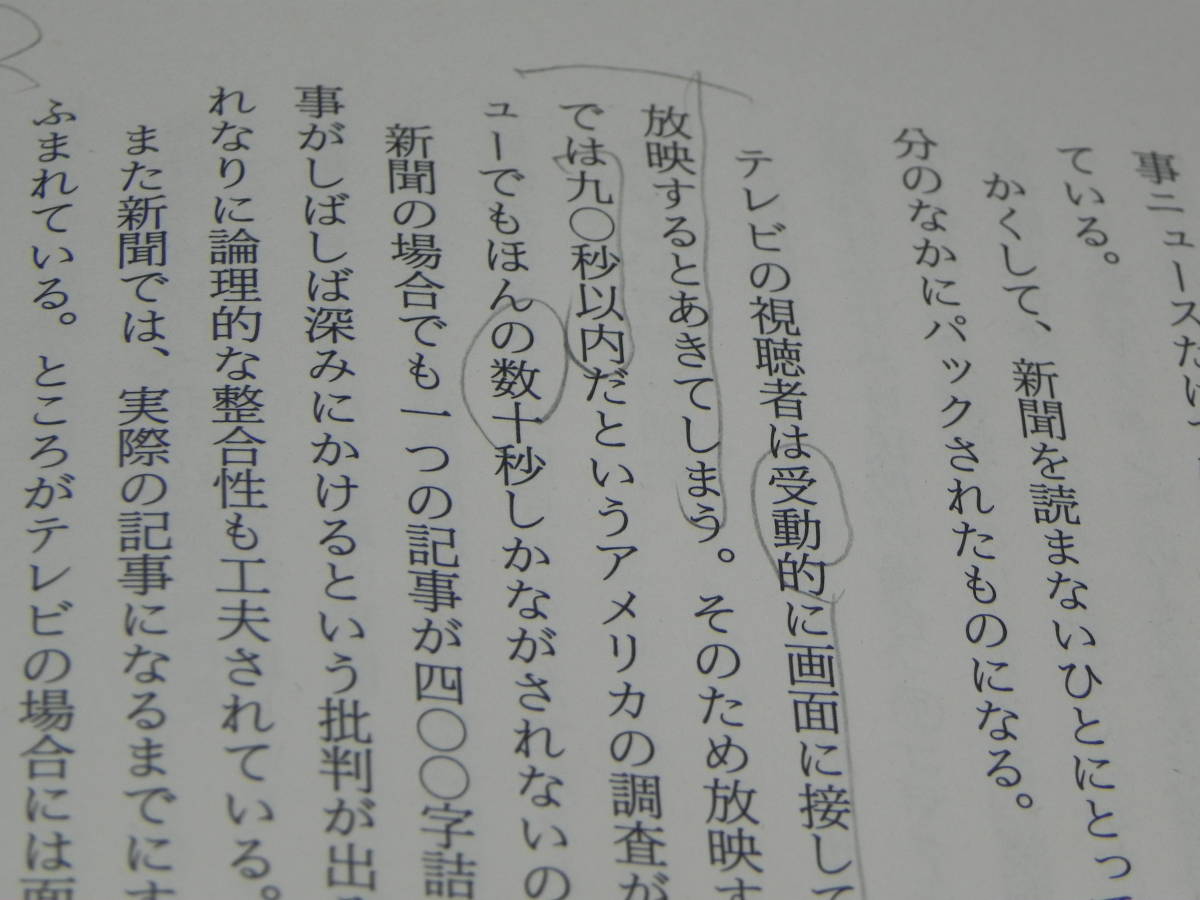 事ニュースだけ
ている。
かくして、新聞を読まないひとにとって
分のなかにパックされたものになる。
テレビの視聴者は受動的に画面に接して
放映するとあきてしまう。そのため放映す
では九〇秒以内だというアメリカの調査が
ューでもほんの数十秒しかながされないの
新聞の場合でも一つの記事が四〇〇字詰
事がしばしば深みにかけるという批判が出る
れなりに論理的な整合性も工夫されている。
また新聞では、実際の記事になるまでにす
ふまれている。ところがテレビの場合には面